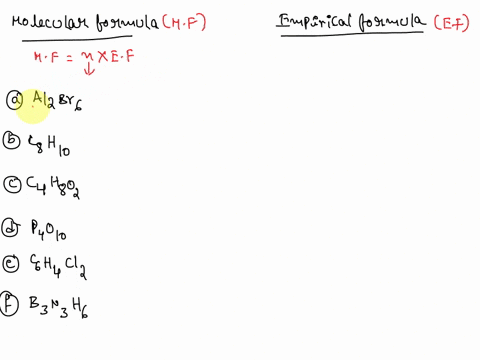 Molecular formula (M.F)
Empirical formula (E.F)
M.F = n X E.F
a Al2Br6
b C8H10
c C4H8O2
d P4O10
e C6H4Cl2
f B3N3H6